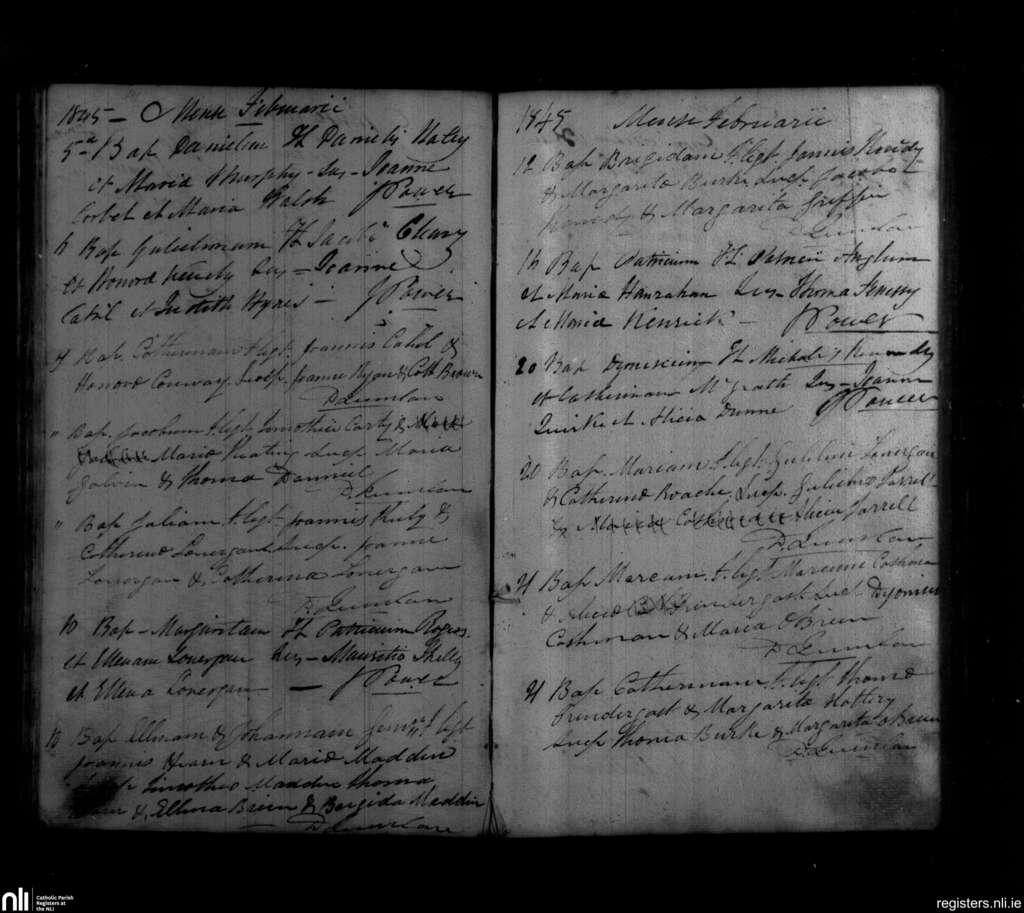 1845 - Mense Februarii
5th Bap Danielem Fl Danielis Hatty
et Maria Murphy - Sus - Joanne
Corbet et Maria Walsh J Power
6 Bap Gulielmum Fl Jacobi Cleary
et Honora Sus - Joanne
Cahil et Judith Hynes - J Power
9 Bap. Catherinam F. legt. Joannis Cahil &
Honora Conway, Susp. Joanne Ryan & Cath Brown
D. Quinlan
" Bap. Jacobum F legt Timothei Carty &
Maria Keating Susp Maria
Galvin & Thoma Danniel
D. Quinlan
" Bap Juliam F. legt Joannis &
Catherina Lonergan Susp. Joanne
Lonergan & Catherina Lonergan
D. Quinlan
10 Bap - Margaritam Fl Patricium Rogers
et Ellenam Lonergan Sus - Mauritio
et Ellena Lonergan — J Power
Bap Ellenam & Johannam legt
Joannis Hearn & Maria Madden
Timotheo Madden Thoma
& Ellena Breen & Bergida Madden
D. Quinlan
1845 Mense Februarii
12 Bap Brigidam F. legt Joannis
& Margarita Burke Susp. Jacobo
& Margarita Griffin
D. Quinlan
16 Bap Patricium Fl Patricii Anglum
et Maria Hanrahan Sus - Thoma
et Maria Kenrick - J Power
20 Bap Dyonisium Fl Michaelis Kennedy
et Catherinam McGrath Sus - Joanne
Quirke et Alicia Dunne J Power
20 Bap. Mariam F legt. Gulielmi Lonergan
& Catherina Roache, Susp. Gulielmo Farrell
& Alicia Farrell
D. Quinlan
21 Bap Marcum F. legt Marcuni Cashman
& Alicia Prindergast Susp Dyonisio
Cashman & Maria O Brien
D. Quinlan
21 Bap Catherinam F. legt Thoma
Prindergast & Margarita Hattery
Susp Thoma Burke & Margarita O Brien
D. Quinlan
nli
Catholic Parish
Registers at
the NLI
registers.nli.ie